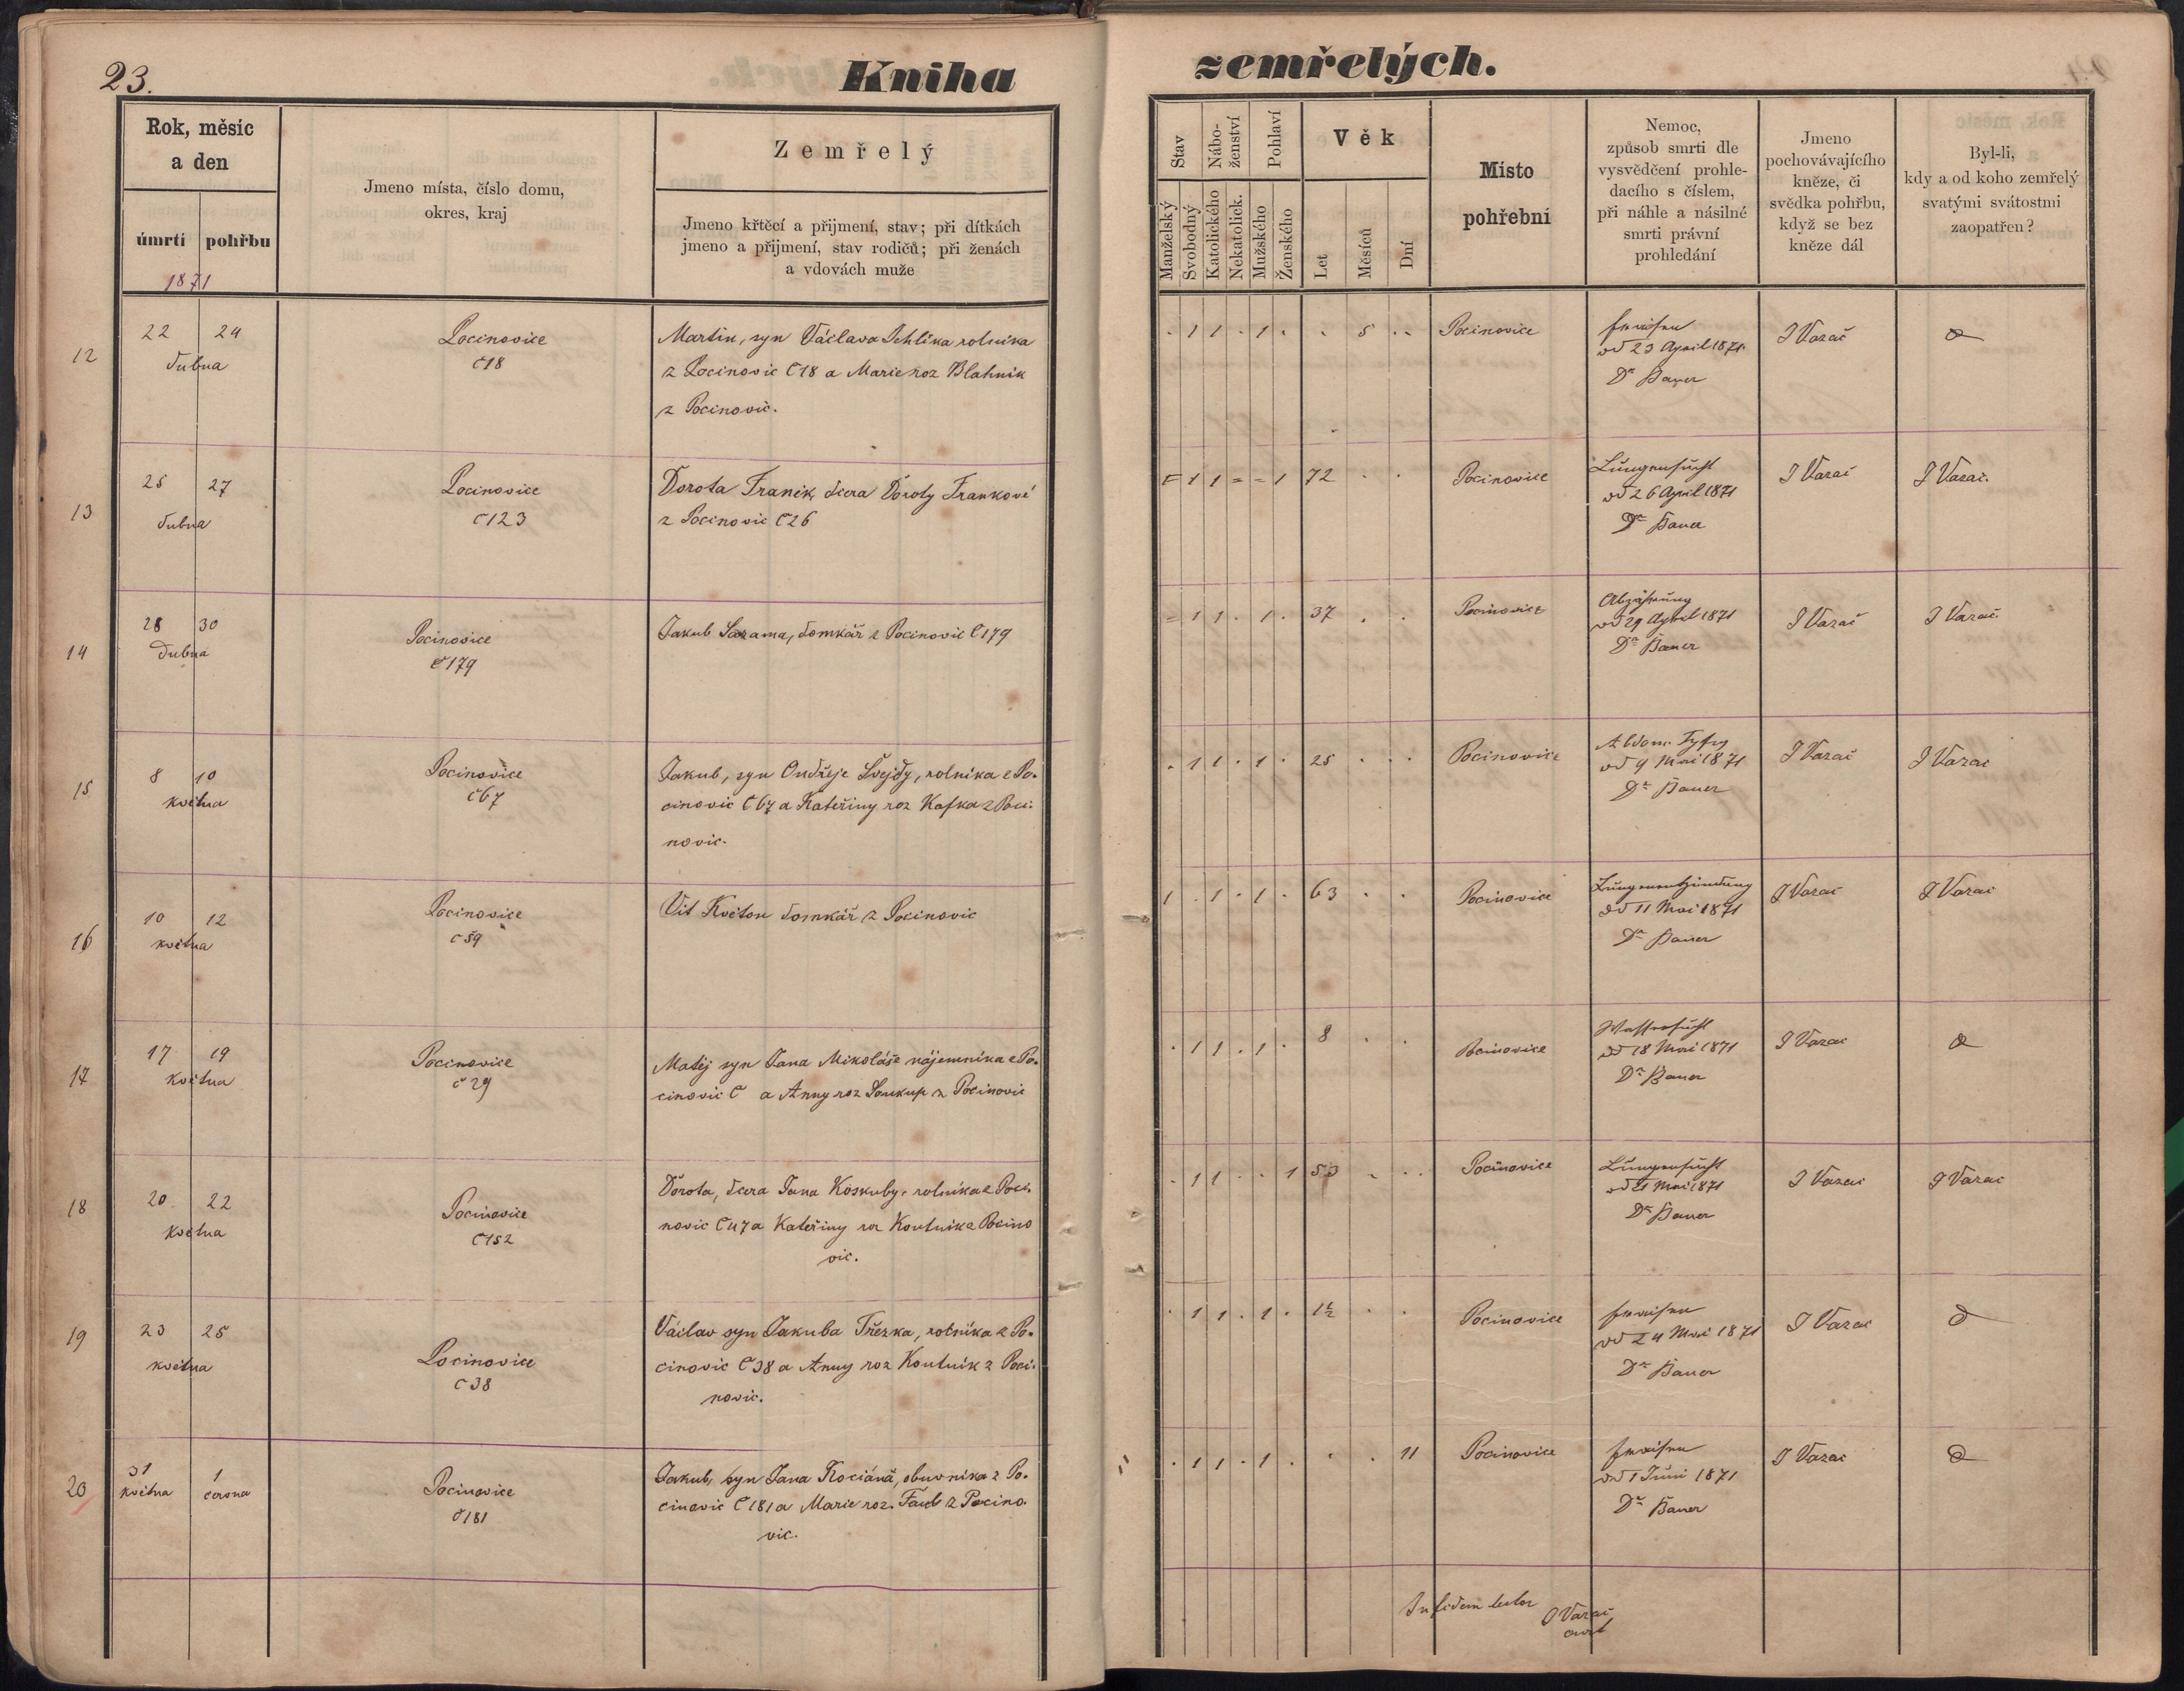 23.
Kniha zemřelých.
Rok, měsíc
a den
úmrtí pohřbu
1871
Jmeno místa, číslo domu,
okres, kraj
Zemřelý
Jmeno křtěcí a přijmení, stav; při dítkách
jmeno a přijmení, stav rodičů; při ženách
a vdovách muže
Stav
Nábo-
ženství
Pohlaví
Věk
Manželský
Svobodný
Katolického
Nekatolick.
Mužského
Ženského
Let
Měsíců
Dní
Místo
pohřební
Nemoc,
způsob smrti dle
vysvědčení prohle-
dacího s číslem,
při náhle a násilné
smrti právní
prohledání
Jmeno
pochovávajícího
kněze, či
svědka pohřbu,
když se bez
kněze dál
Byl-li,
kdy a od koho zemřelý
svatými svátostmi
zaopatřen?
12
22 24
dubna
Pocinovice
č18
Martin, syn Václava rolníka
z Pocinovic č18 a Marie roz Blahnik
z Pocinovic.
. 1 1 . 1 . . 5 . .
Pocinovice
Fraisen
od 23 April 1871
Dr Bauer
J Vazač
13
25 27
dubna
Pocinovice
č123
Dorota Franik, dcera Doroty Frankové
z Pocinovic č26
= 1 1 = = 1 72 . .
Pocinovice
Lungensucht
od 26 April 1871
Dr Bauer
J Vazač
J Vazač.
14
28 30
dubna
Pocinovice
č179
Jakub Sazama, domkář z Pocinovic č179
= 1 1 . 1 . 37 . .
Pocinovice
Abzehrung
od 29 April 1871
Dr Bauer
J Vazač
J Vazač.
15
8 10
května
Pocinovice
č67
Jakub, syn Ondřeje Švejdy, rolníka z Po-
cinovic č67 a Kateřiny roz Kafka z Poci-
novic.
. 1 1 . 1 . 25 . . .
Pocinovice
Abdom. Tyfus
od 9 Mai 1871
Dr Bauer
J Vazač
J Vazac
16
10 12
května
Pocinovice
č59
Vit Květon domkář z Pocinovic
1 . 1 . 1 . 63 . .
Pocinovice
Lungenentzündung
od 11 Mai 1871
Dr Bauer
J Vazač
J Vazac
17
17 19
května
Pocinovice
č29
Matěj syn Jana Mikoláše nájemníka z Po-
cinovic č a Anny roz Soukup z Pocinovic
. 1 1 . 1 . 8 . .
Pocinovice
Wassersucht
od 18 Mai 1871
Dr Bauer
J Vazac
18
20 22
května
Pocinovice
č152
Dorota, dcera Jana Koskuby, rolníka z Poci-
novic č47 a Kateřiny roz Koutnik z Pocino
vic.
. 1 1 . . 1 53 . . .
Pocinovice
Lungensucht
od 21 Mai 1871
Dr Bauer
J Vazac
J Vazac
19
23 25
května
Pocinovice
č38
Václav syn Jakuba Třezka, rolníka z Po-
cinovic č38 a Anny roz Koutnik z Poci-
novic.
. 1 1 . 1 . 1½ . .
Pocinovice
Fraisen
od 24 Mai 1871
Dr Bauer
J Vazac
20
31 1
května června
Pocinovice
č181
Jakub, syn Jana Kociáná, obuvníka z Po-
cinovic č181 a Marie roz. Faub z Pocino-
vic.
. 1 1 . 1 . . . 11
Pocinovice
Fraisen
od 1 Juni 1871
Dr Bauer
J Vazac
In fidem
J Vazač